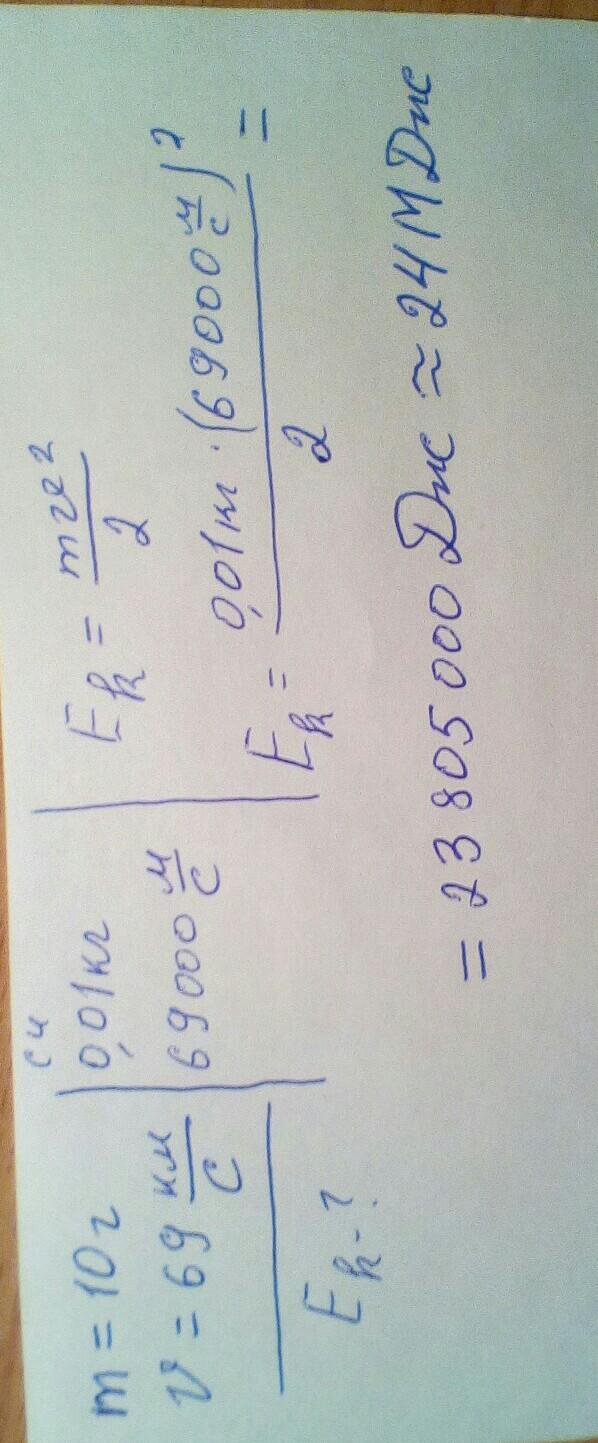 m = 10г
v = 69 км/с
Eк - ?
СИ
0,01кг
69000 м/с
Eк = mv²/2
Eк = 0,01кг · (69000 м/с)²/2 =
= 23805000 Дж ≈ 24 МДж